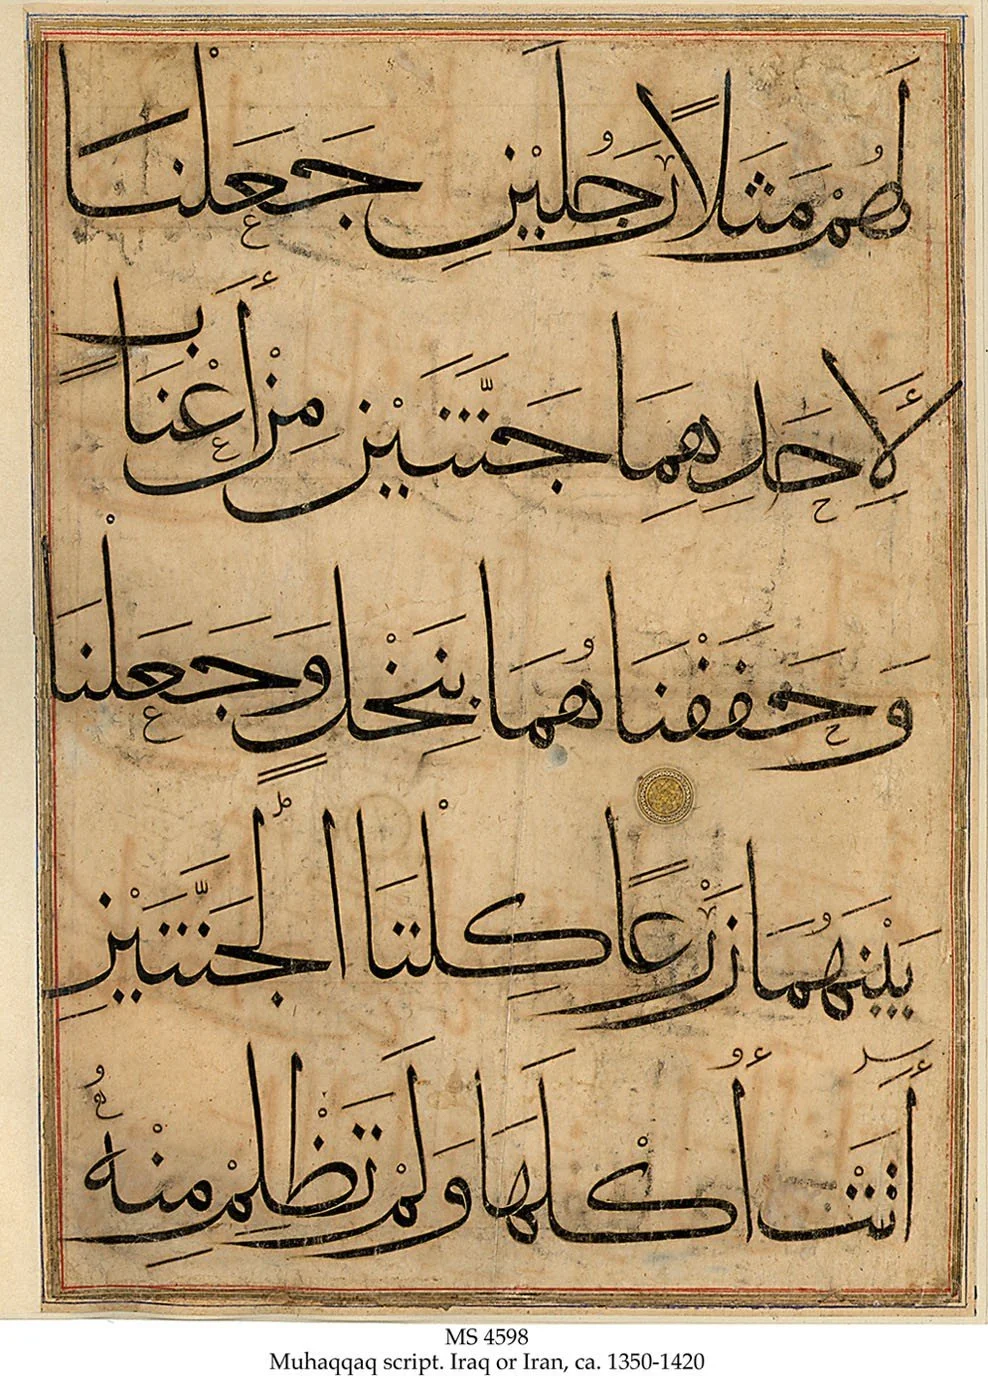 لَهُمْ مَثَلًا رَجُلَيْنِ جَعَلْنَا
لِأَحَدِهِمَا جَنَّتَيْنِ مِنْ أَعْنَابٍ
وَحَفَفْنَاهُمَا بِنَخْلٍ وَجَعَلْنَا
بَيْنَهُمَا زَرْعًا كِلْتَا الْجَنَّتَيْنِ
أَتَتْ أُكُلَهَا وَلَمْ تَظْلِمْ مِنْهُ
MS 4598
Muhaqqaq script. Iraq or Iran, ca. 1350-1420